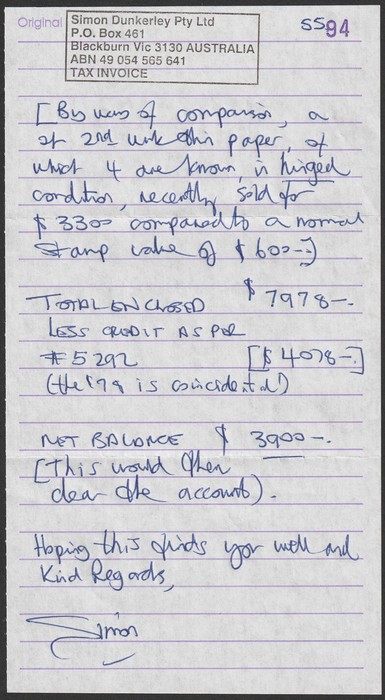 Original
Simon Dunkerley Pty Ltd
P.O. Box 461
Blackburn Vic 3130 AUSTRALIA
ABN 49 054 565 641
TAX INVOICE
5594
[By way of comparison, a
st 2nd wmk thin paper, of
which 4 are known, in hinged
condition, recently sold for
$3300 compared to a normal
stamp value of $600-.]
TOTAL ENCLOSED $7978-.
LESS CREDIT AS PER
#5292 [$4078-.]
(the '78 is coincidental)
NET BALANCE $ 3900-.
[This would then
clear the account).
Hoping this finds you well and
Kind Regards,
Simon